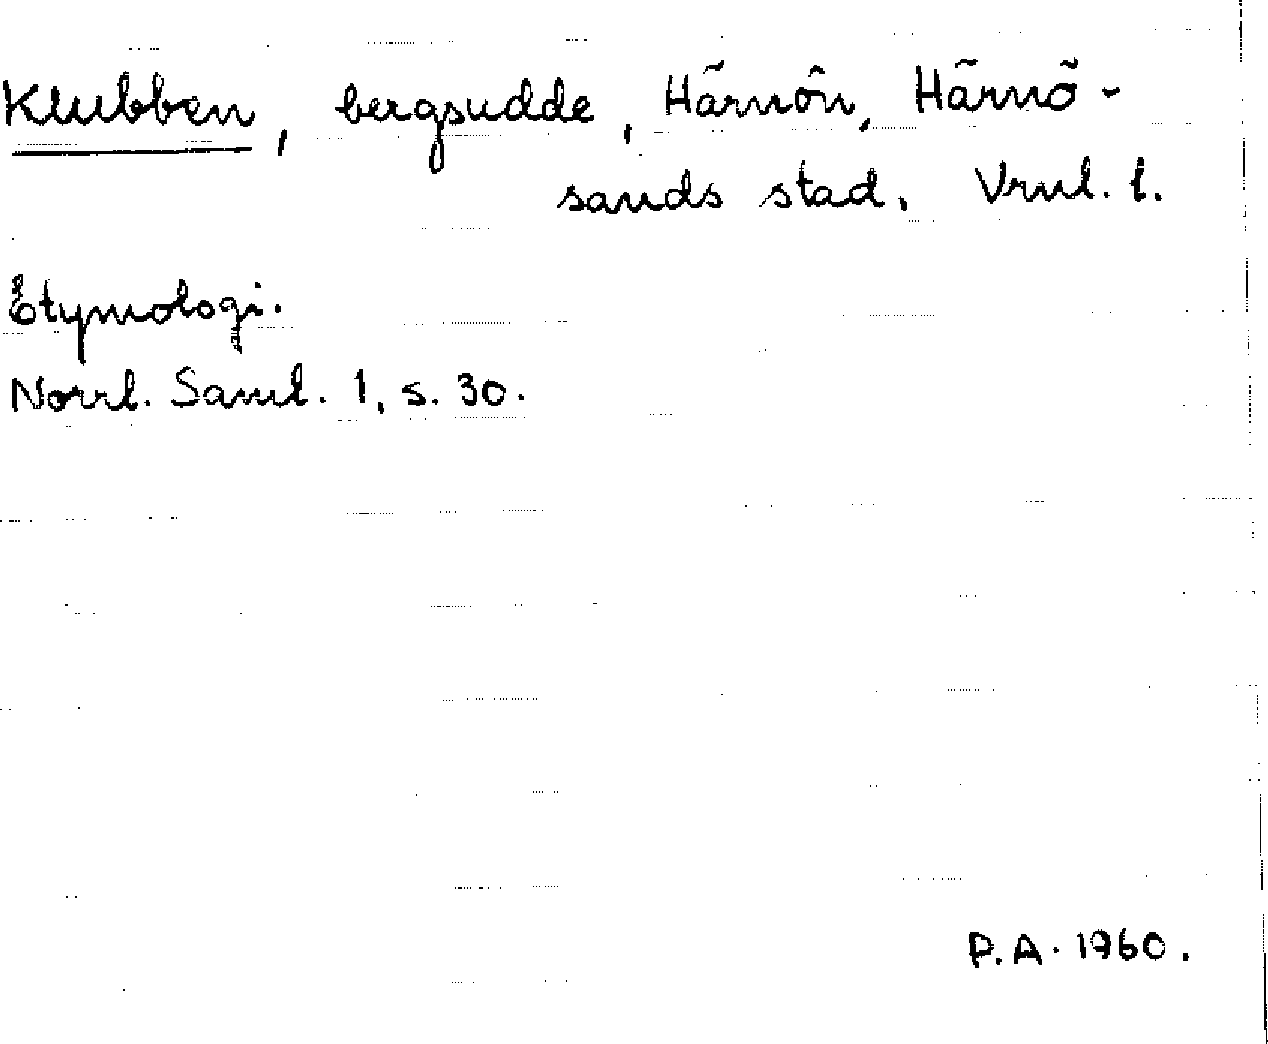 Klubben, bergsudde, Härnön, Härnö-
sands stad. Vrnl. l.
Etymologi.
Norrl. Saml. 1, s. 30.
P.A. 1960.